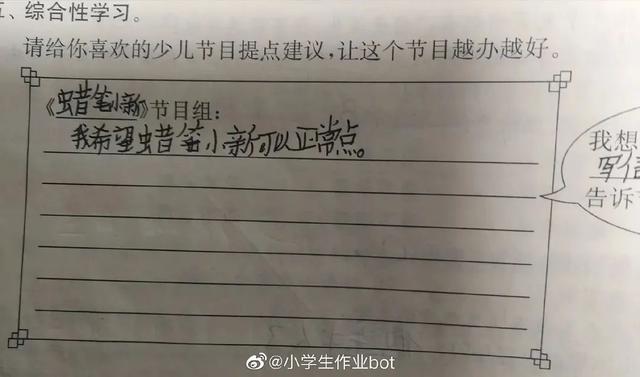 五、综合性学习。
请给你喜欢的少儿节目提点建议,让这个节目越办越好。
《蜡笔小新》节目组:
我希望蜡笔小新可以正常点。
我想
写信
告诉
@小学生作业bot